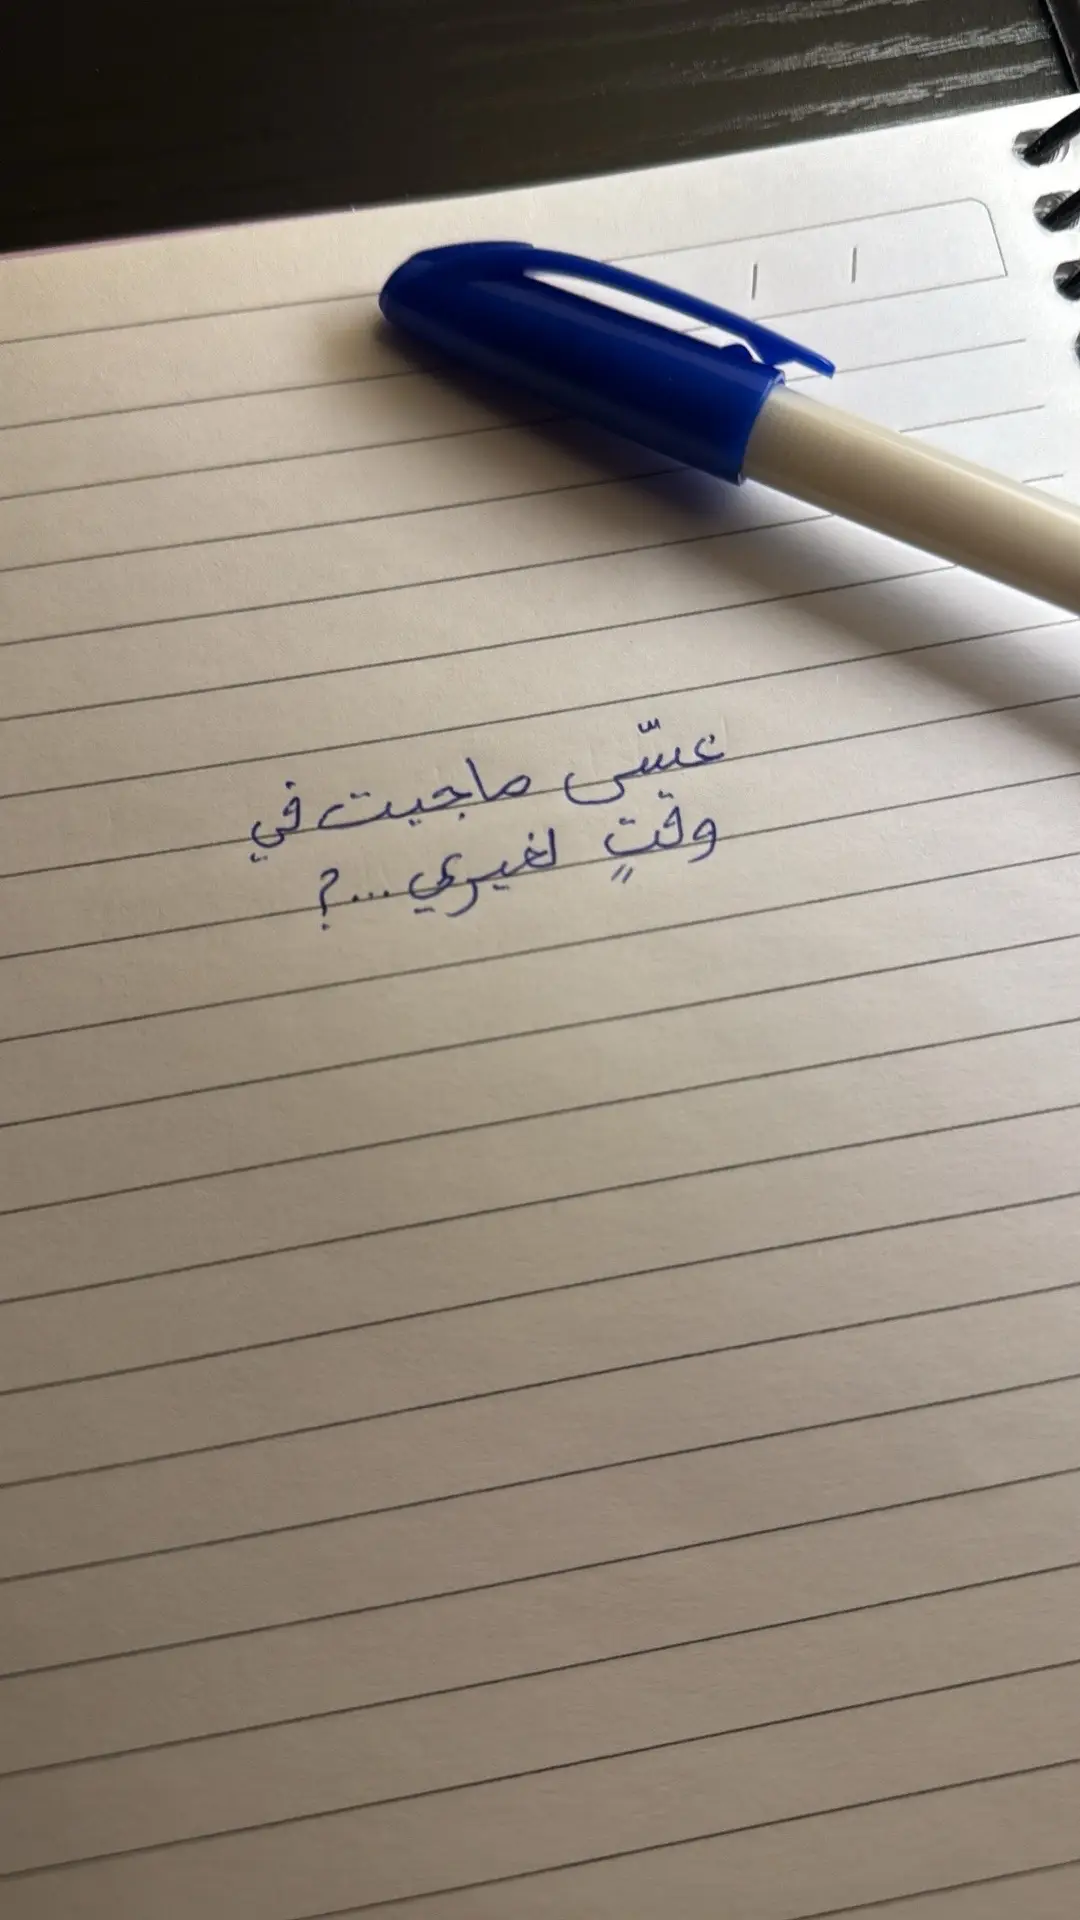 عسّى ماجيت في
وقتٍ لغيري...؟